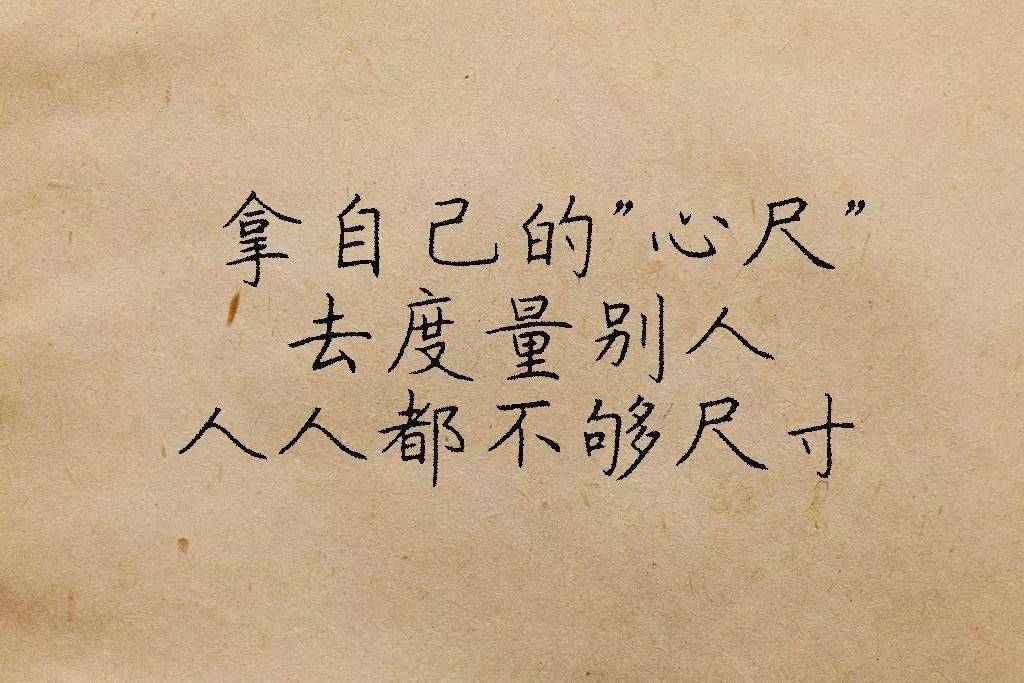 拿自己的”心尺”
去度量别人
人人都不够尺寸